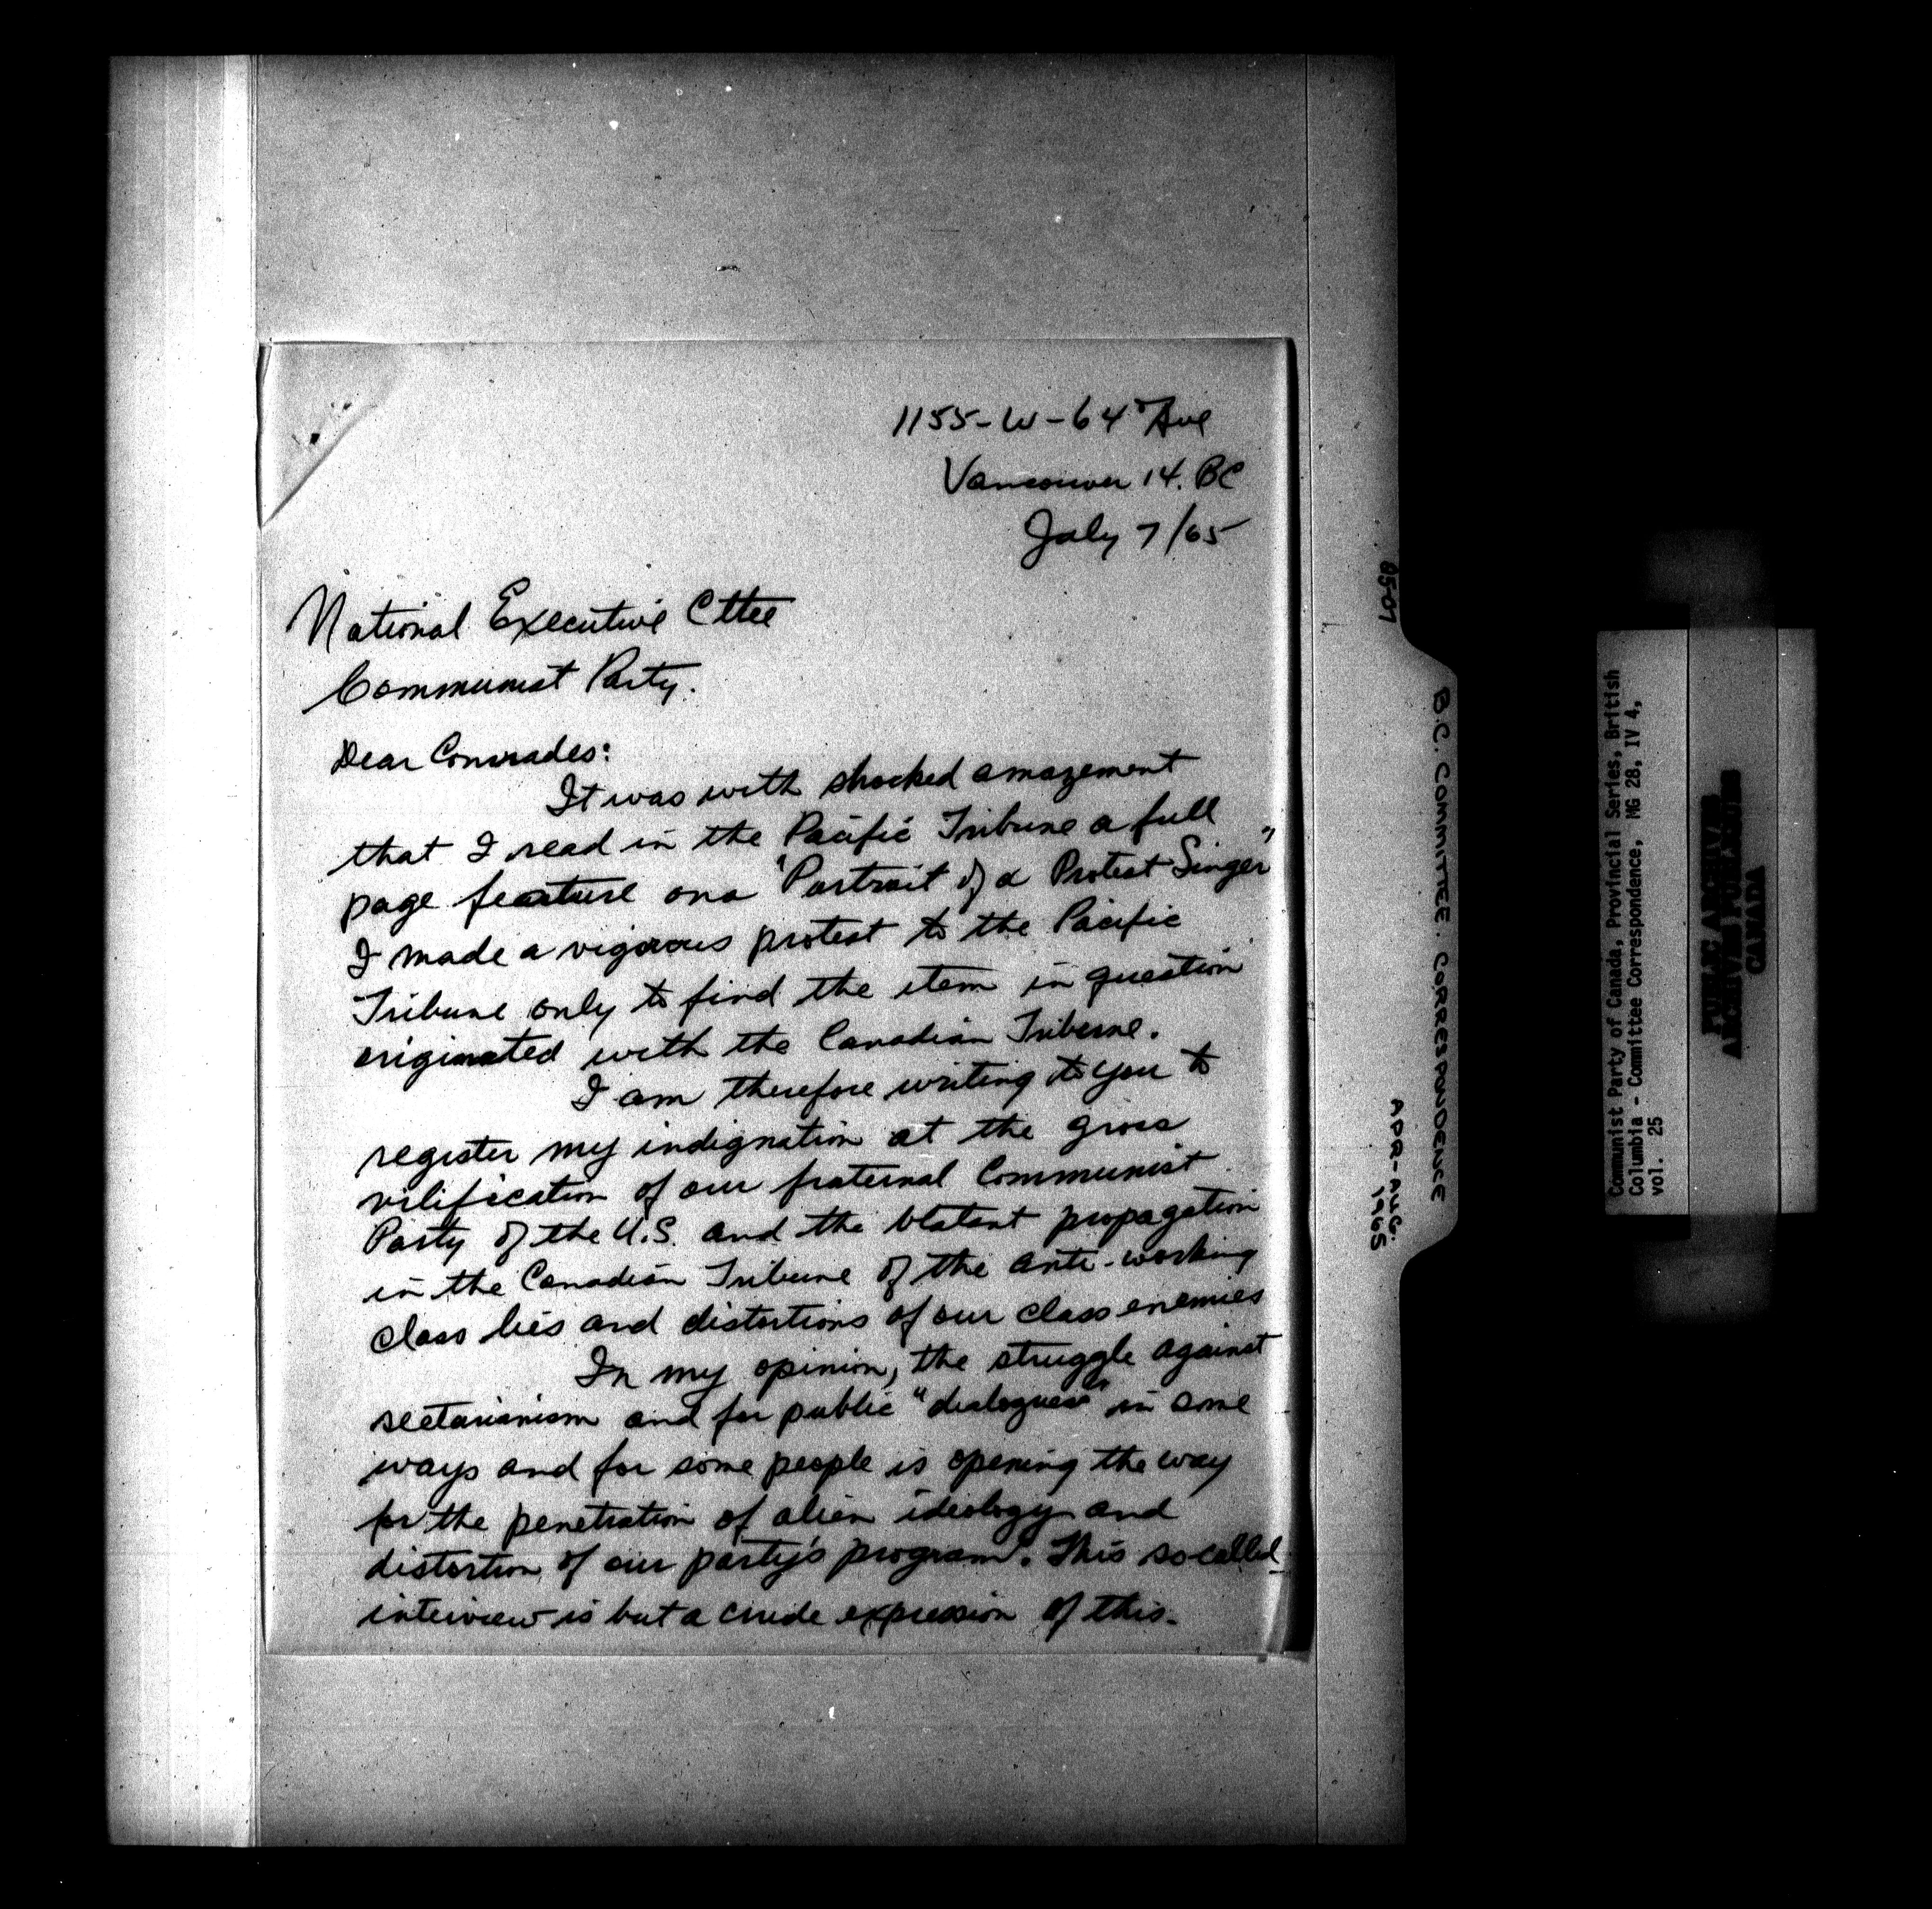 1155-W-64 Ave
Vancouver 14. BC
July 7/65
National Executive Cttee
Communist Party.
Dear Comrades:
It was with shocked amazement
that I read in the Pacific Tribune a full
page feature on a "Portrait of a Protest Singer"
I made a vigorous protest to the Pacific
Tribune only to find the item in question
originated with the Canadian Tribune.
I am therefore writing to you to
register my indignation at the gross
vilification of our fraternal Communist
Party of the U.S. and the blatant propagation
in the Canadian Tribune of the anti-working
class lies and distortions of our class enemies
In my opinion, the struggle against
sectarianism and for public "dialogues" in some
ways and for some people is opening the way
for the penetration of alien ideology and
distortion of our party's program. This so-called
interview is but a crude expression of this.
85-07
B.C. COMMITTEE. CORRESPONDENCE
APR-AUG.
1965
Communist Party of Canada, Provincial Series, British
Columbia - Committee Correspondence, MG 28, IV 4,
vol. 25
PUBLIC ARCHIVES
ARCHIVES PUBLIQUES
CANADA